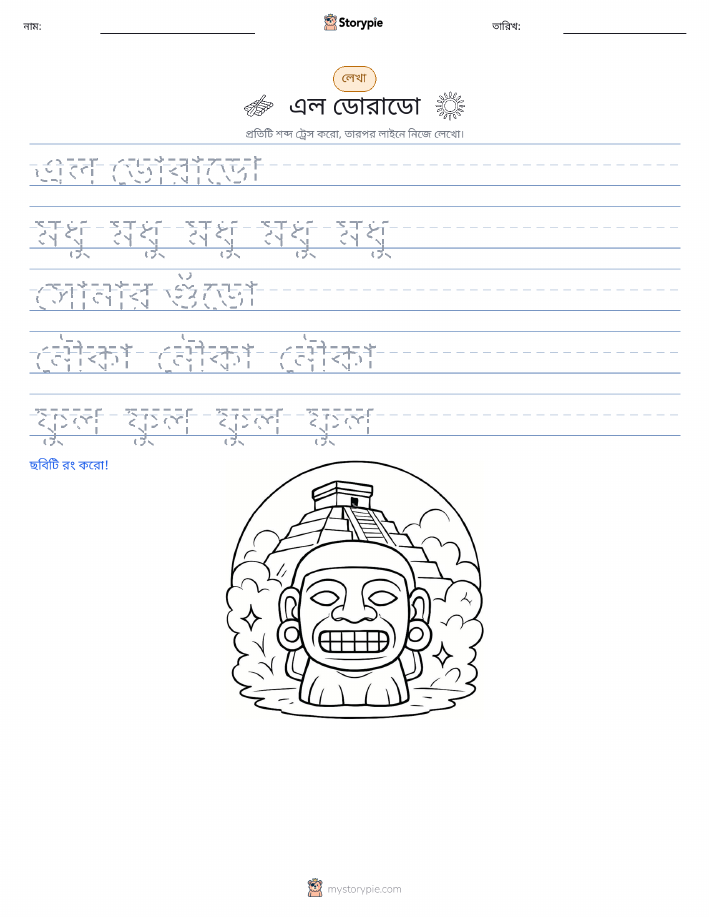 নাম:
Storypie
তারিখ:
লেখা
এল ডোরাডো
প্রতিটি শব্দ ট্রেস করো, তারপর লাইনে নিজে লেখো।
এল ডোরাডো
মধু মধু মধু মধু মধু
সোনার গুঁড়ো
নৌকা নৌকা নৌকা
ফুল ফুল ফুল ফুল
ছবিটি রং করো!
mystorypie.com